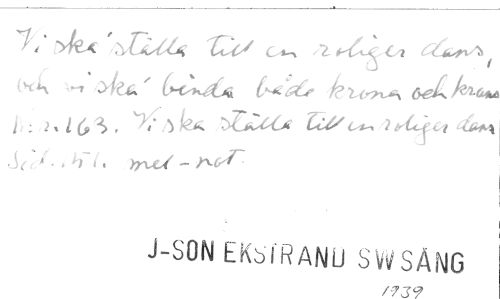 Vi ska' ställa till en roliger dans,
och vi ska' binda både krona och krans
N:r. 163. Vi ska ställa till en roliger dans
Sid. 151. mel-not.
J-SON EKSTRAND SW SÅNG
1939